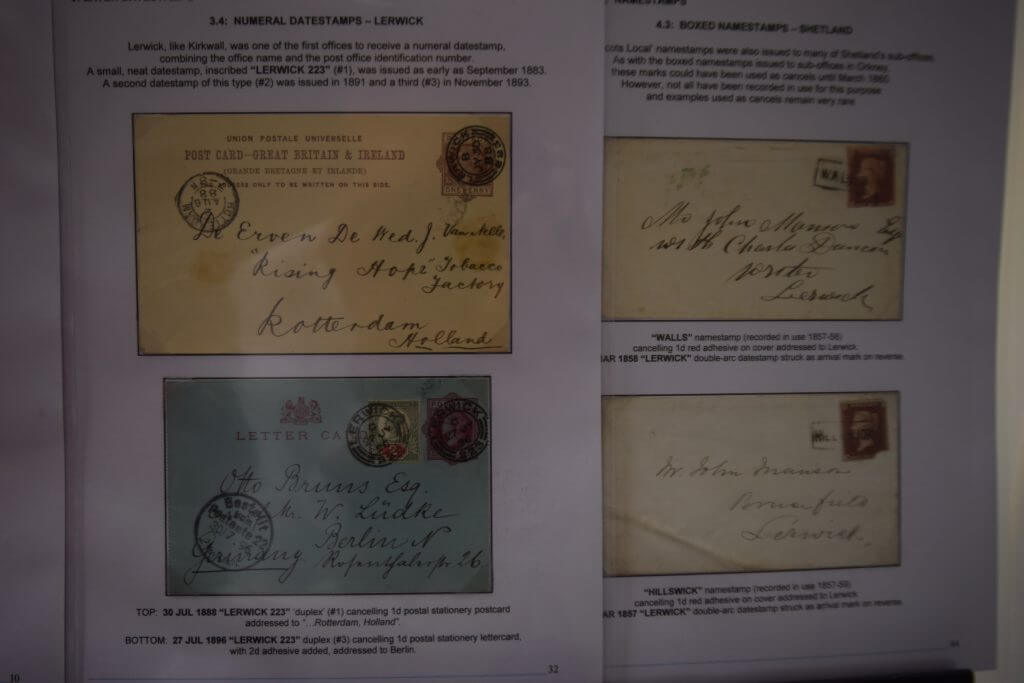 3.4: NUMERAL DATESTAMPS – LERWICK
Lerwick, like Kirkwall, was one of the first offices to receive a numeral datestamp,
combining the office name and the post office identification number.
A small, neat datestamp, inscribed "LERWICK 223" (#1), was issued as early as September 1883.
A second datestamp of this type (#2) was issued in 1891 and a third (#3) in November 1893.
UNION POSTALE UNIVERSELLE
POST CARD—GREAT BRITAIN & IRELAND
(GRANDE BRETAGNE ET IRLANDE)
ONLY TO BE WRITTEN ON THIS SIDE.
ONE PENNY
De Erven De Wed. J. Van Nelle,
"Rising Hope" Tobacco
Factory
Rotterdam
Holland
LETTER CA
LERWICK
Otto Bruns Esq.
Mr. W. Lüdke
Berlin N
Germany Rosenthalerstr 26
Bestellt
vom
Postamte
TOP: 30 JUL 1888 "LERWICK 223" 'duplex' (#1) cancelling 1d postal stationery postcard
addressed to "...Rotterdam, Holland".
BOTTOM: 27 JUL 1896 "LERWICK 223" duplex (#3) cancelling 1d postal stationery lettercard,
with 2d adhesive added, addressed to Berlin.
32
10
NAMESTAMPS
4.3: BOXED NAMESTAMPS – SHETLAND
cots Local' namestamps were also issued to many of Shetland's sub-offices.
As with the boxed namestamps issued to sub-offices in Orkney,
these marks could have been used as cancels until March 1860.
However, not all have been recorded in use for this purpose
and examples used as cancels remain very rare.
WALL
Mr John Manson Esq
with Charles Duncan
writer
Lerwick
"WALLS" namestamp (recorded in use 1857-58)
cancelling 1d red adhesive on cover addressed to Lerwick.
AR 1858 "LERWICK" double-arc datestamp struck as arrival mark on reverse.
HILL
Mr John Manson
Lerwick
"HILLSWICK" namestamp (recorded in use 1857-59)
cancelling 1d red adhesive on cover addressed to Lerwick.
AR 1857 "LERWICK" double-arc datestamp struck as arrival mark on reverse.
44